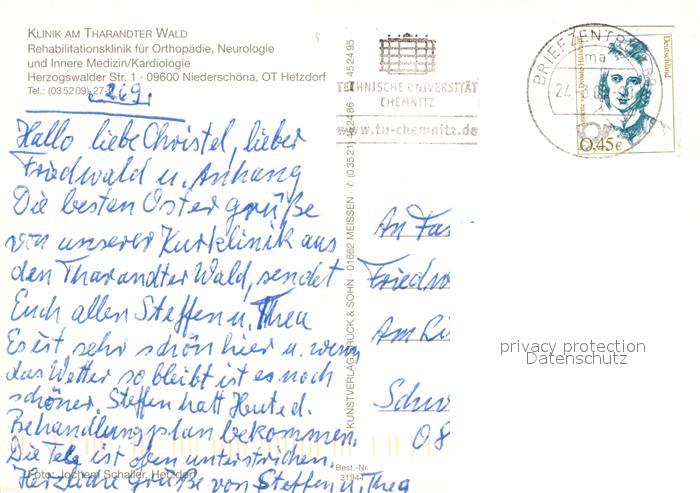 KLINIK AM THARANDTER WALD
Rehabilitationsklinik für Orthopädie, Neurologie
und Innere Medizin/Kardiologie
Herzogswalder Str. 1 · 09600 Niederschöna, OT Hetzdorf
Tel.: (035209) 27-
249.
Hallo liebe Christel, lieber
Friedwald u. Anhang
Die besten Ostergrüße
von unserer Kurklinik aus
den Tharandter Wald, sendet
Euch allen Steffen u. Thea
Es ist sehr schön hier u. wenn
das Wetter so bleibt ist es noch
schöner. Steffen hatt Heute d.
Behandlungsplan bekommen.
Die Tele ist oben unterstrichen.
Herzliche grüße von Steffen u. Thea
Foto: Jochem Schaller, Hetzdorf
Best.-Nr.
31944
KUNSTVERLAG BRÜCK & SOHN · 01662 MEISSEN · ✆ (03521)
TECHNISCHE UNIVERSITÄT
CHEMNITZ
www.tu-chemnitz.de
BRIEFZENTRUM
ma
24.
Deutschland
0,45€
An Fa
Friedw
Am Ri
Schw
08
privacy protection
Datenschutz